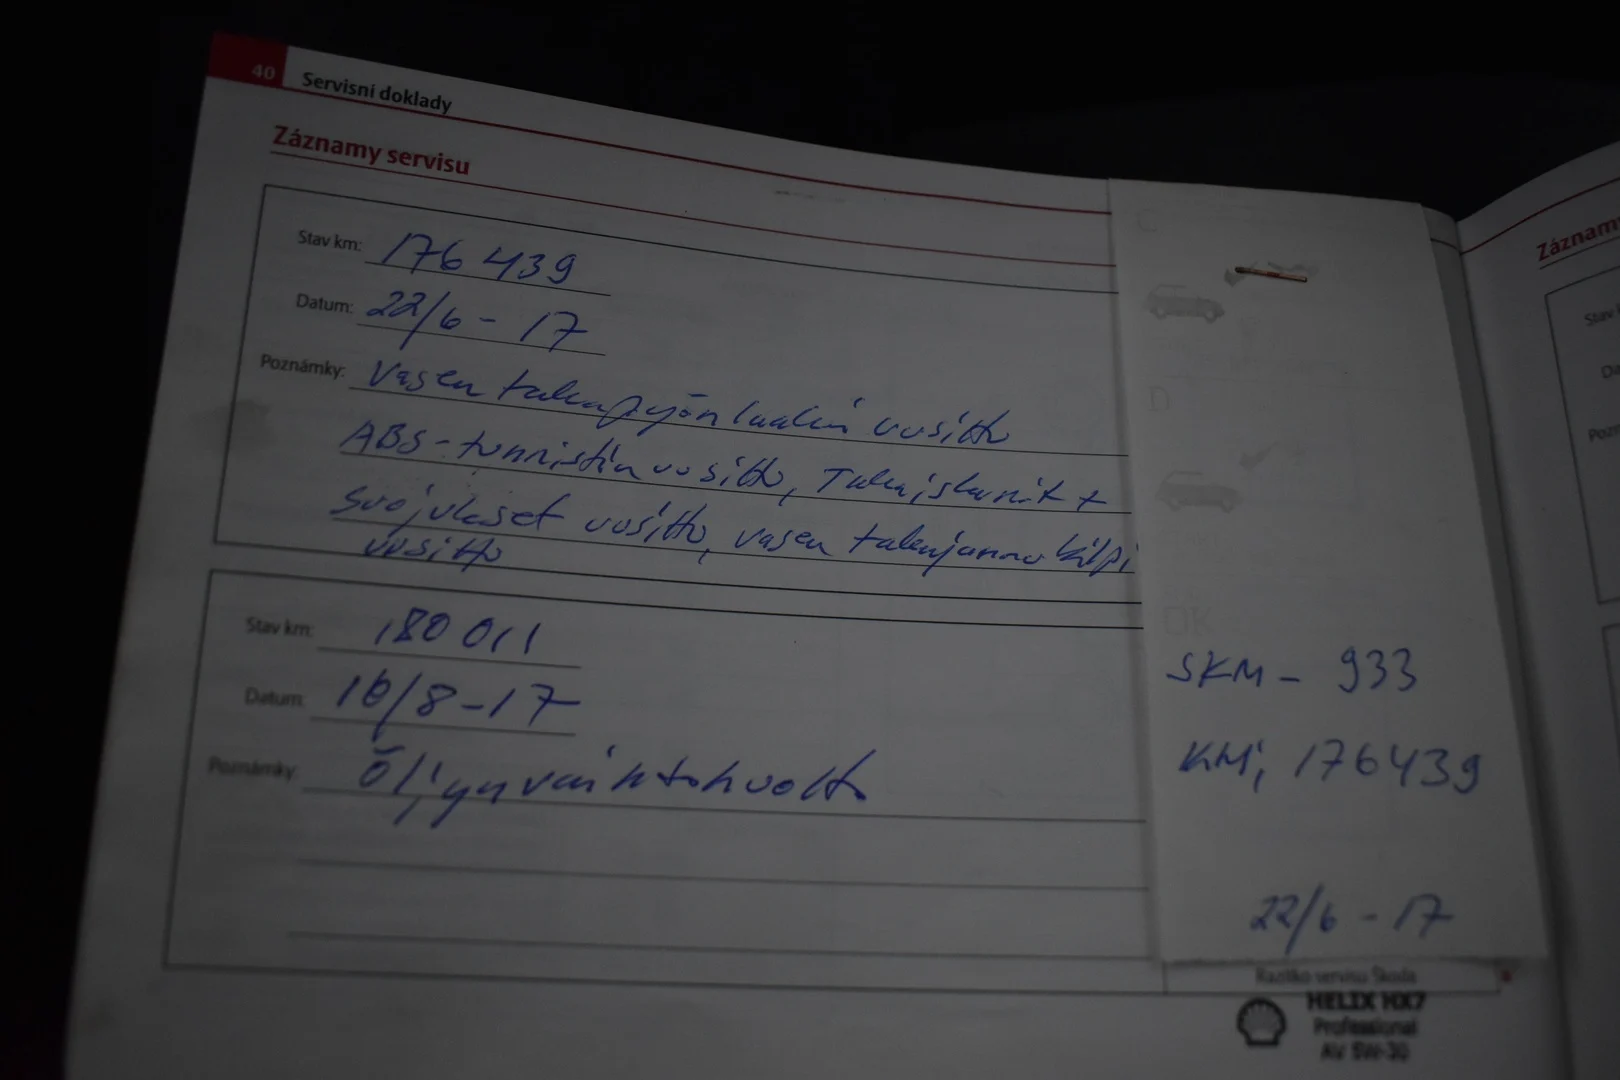 40 Servisní doklady
Záznamy servisu
Stav km: 176 439
Datum: 22/6 - 17
Poznámky: Vasen takapyön laakeri vusittu
ABS-tunnistin uusittu, Takajskarit +
suojukset uusittu, vasen takajarrukilpi
uusittu
Stav km: 180 011
Datum: 16/8-17
Poznámky: Öljyn vaihto huolto
SKM - 933
KM; 176439
22/6 - 17
Razítko servisu Škoda
HELIX HX7
Professional
AV 5W-30
Záznam
Stav
Da
Pozn